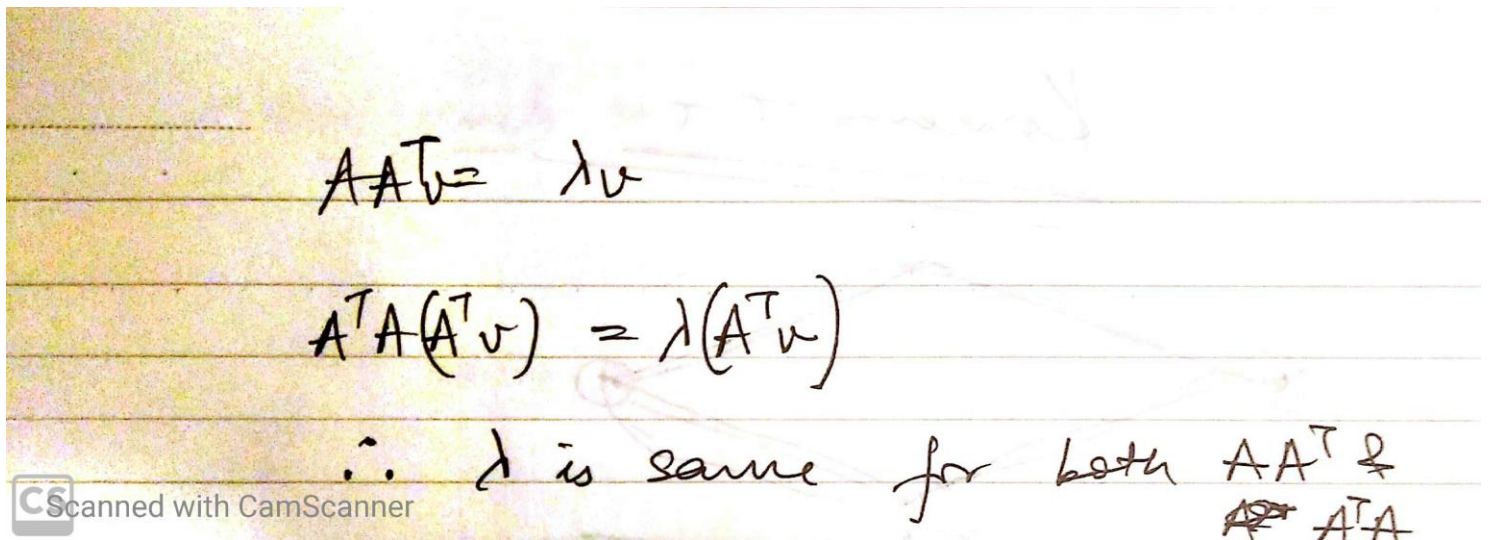 AAᵀv = λv
AᵀA(Aᵀv) = λ(Aᵀv)
∴ λ is same for both AAᵀ &
AᵀA
CS Scanned with CamScanner